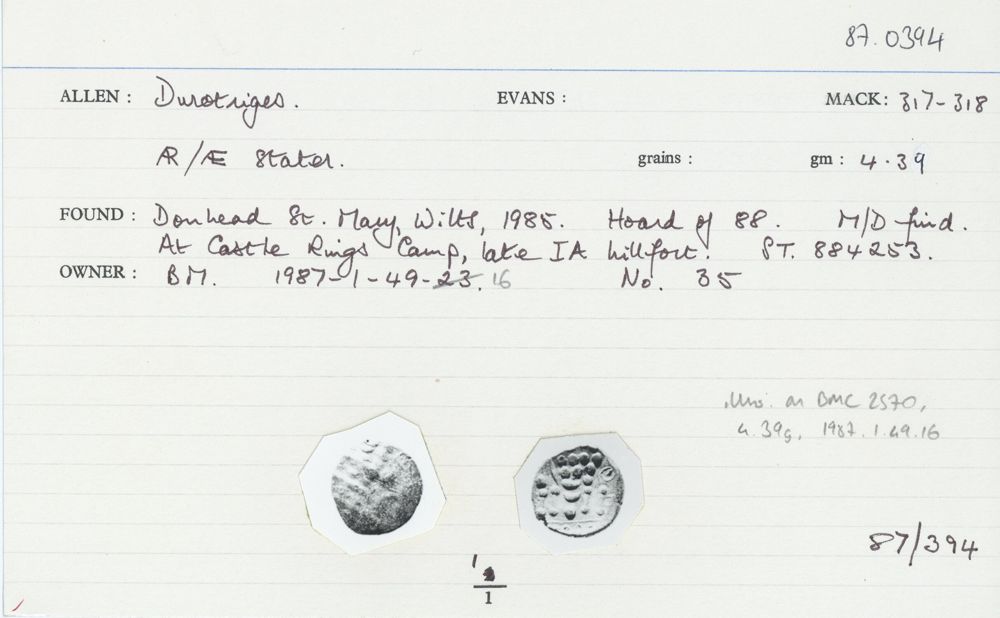 87.0394
ALLEN : Durotriges. EVANS : MACK: 317-318
ÆR/Æ Stater. grains : gm : 4.39
FOUND : Donhead St. Mary, Wilts, 1985. Hoard of 88. M/D find.
At Castle Rings Camp, late IA hillfort. ST. 884253.
OWNER : BM. 1987-1-49-23. 16 No. 35
as BMC 2570,
4.39g, 1987.1.49.16
87/394
1
1